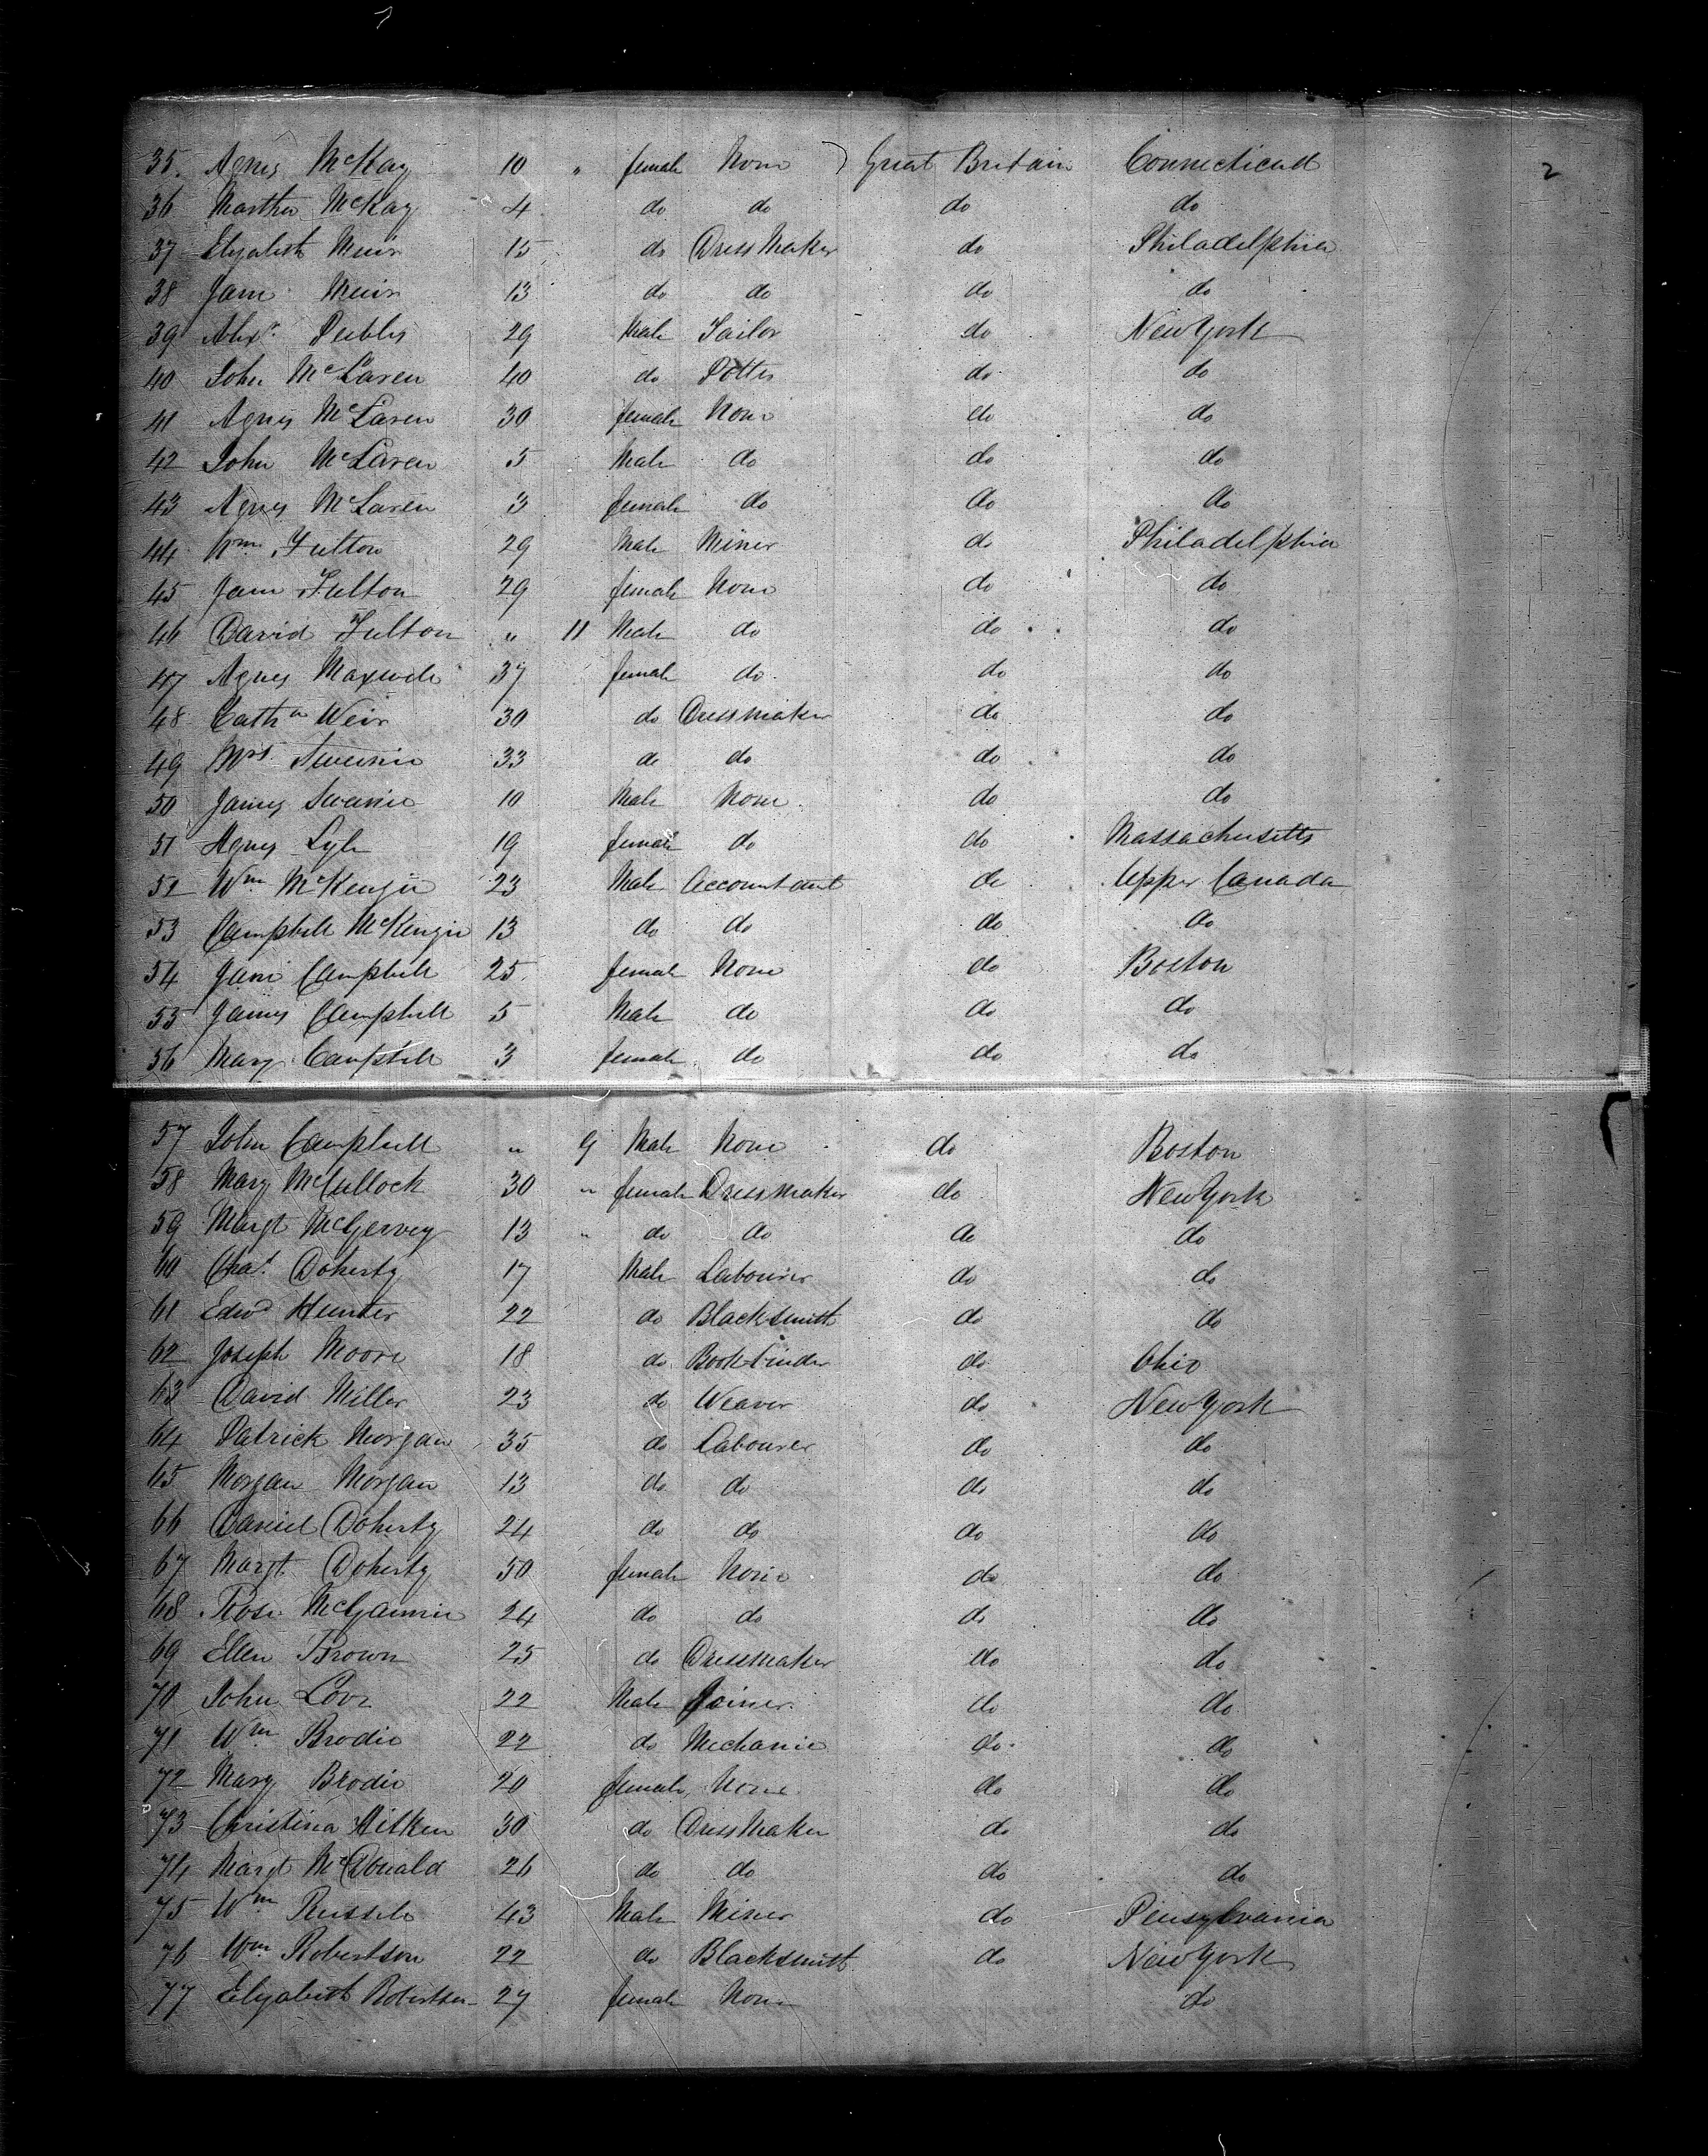 2
35. Agnes McKay 10 " female None Great Britain Connecticut
36 Martha McKay 4 do do do do
37 Elizabeth Muir 15 do Dress Maker do Philadelphia
38 Jane Muir 13 do do do do
39 Alexr. Peebles 29 Male Tailor do New York
40 John McLaren 40 do Potter do do
41 Agnes McLaren 30 female None do do
42 John McLaren 5 Male do do do
43 Agnes McLaren 3 female do do do
44 Wm Fulton 29 Male Miner do Philadelphia
45 Jane Fulton 29 female None do do
46 David Fulton " 11 Male do do do
47 Agnes Maxwell 37 female do do do
48 Cathn Weir 30 do Dressmaker do do
49 Mrs. 33 do do do do
50 James 10 Male None do do
51 Agnes Lyle 19 female do do Massachusetts
52 Wm McKenzie 23 Male Accountant do Upper Canada
53 Campbell McKenzie 13 do do do do
54 Jane Campbell 25 female None do Boston
55 James Campbell 5 Male do do do
56 Mary Campbell 3 female do do do
57 John Campbell " 9 Male None do Boston
58 Mary McCullock 30 " female Dressmaker do New York
59 Margt McGervey 13 " do do do do
60 Chas. Doherty 17 Male Labourer do do
61 Edwd Hunter 22 do Blacksmith do do
62 Joseph Moore 18 do Bookbinder do Ohio
63 David Miller 23 do Weaver do New York
64 Patrick Morgan 35 do Labourer do do
65 Morgan Morgan 13 do do do do
66 Daniel Doherty 24 do do do do
67 Margt Doherty 50 female None do do
68 Rose 24 do do do do
69 Ellen Brown 25 do Dressmaker do do
70 John Love 22 Male Joiner do do
71 Wm Brodie 22 do Mechanic do do
72 Mary Brodie 20 female None do do
73 Christina Aitken 30 do Dress Maker do do
74 Margt McDonald 26 do do do do
75 Wm Russell 43 Male Miner do Pensylvania
76 Wm Robertson 22 do Blacksmith do New York
77 Elizabeth Robertson 27 female None do do